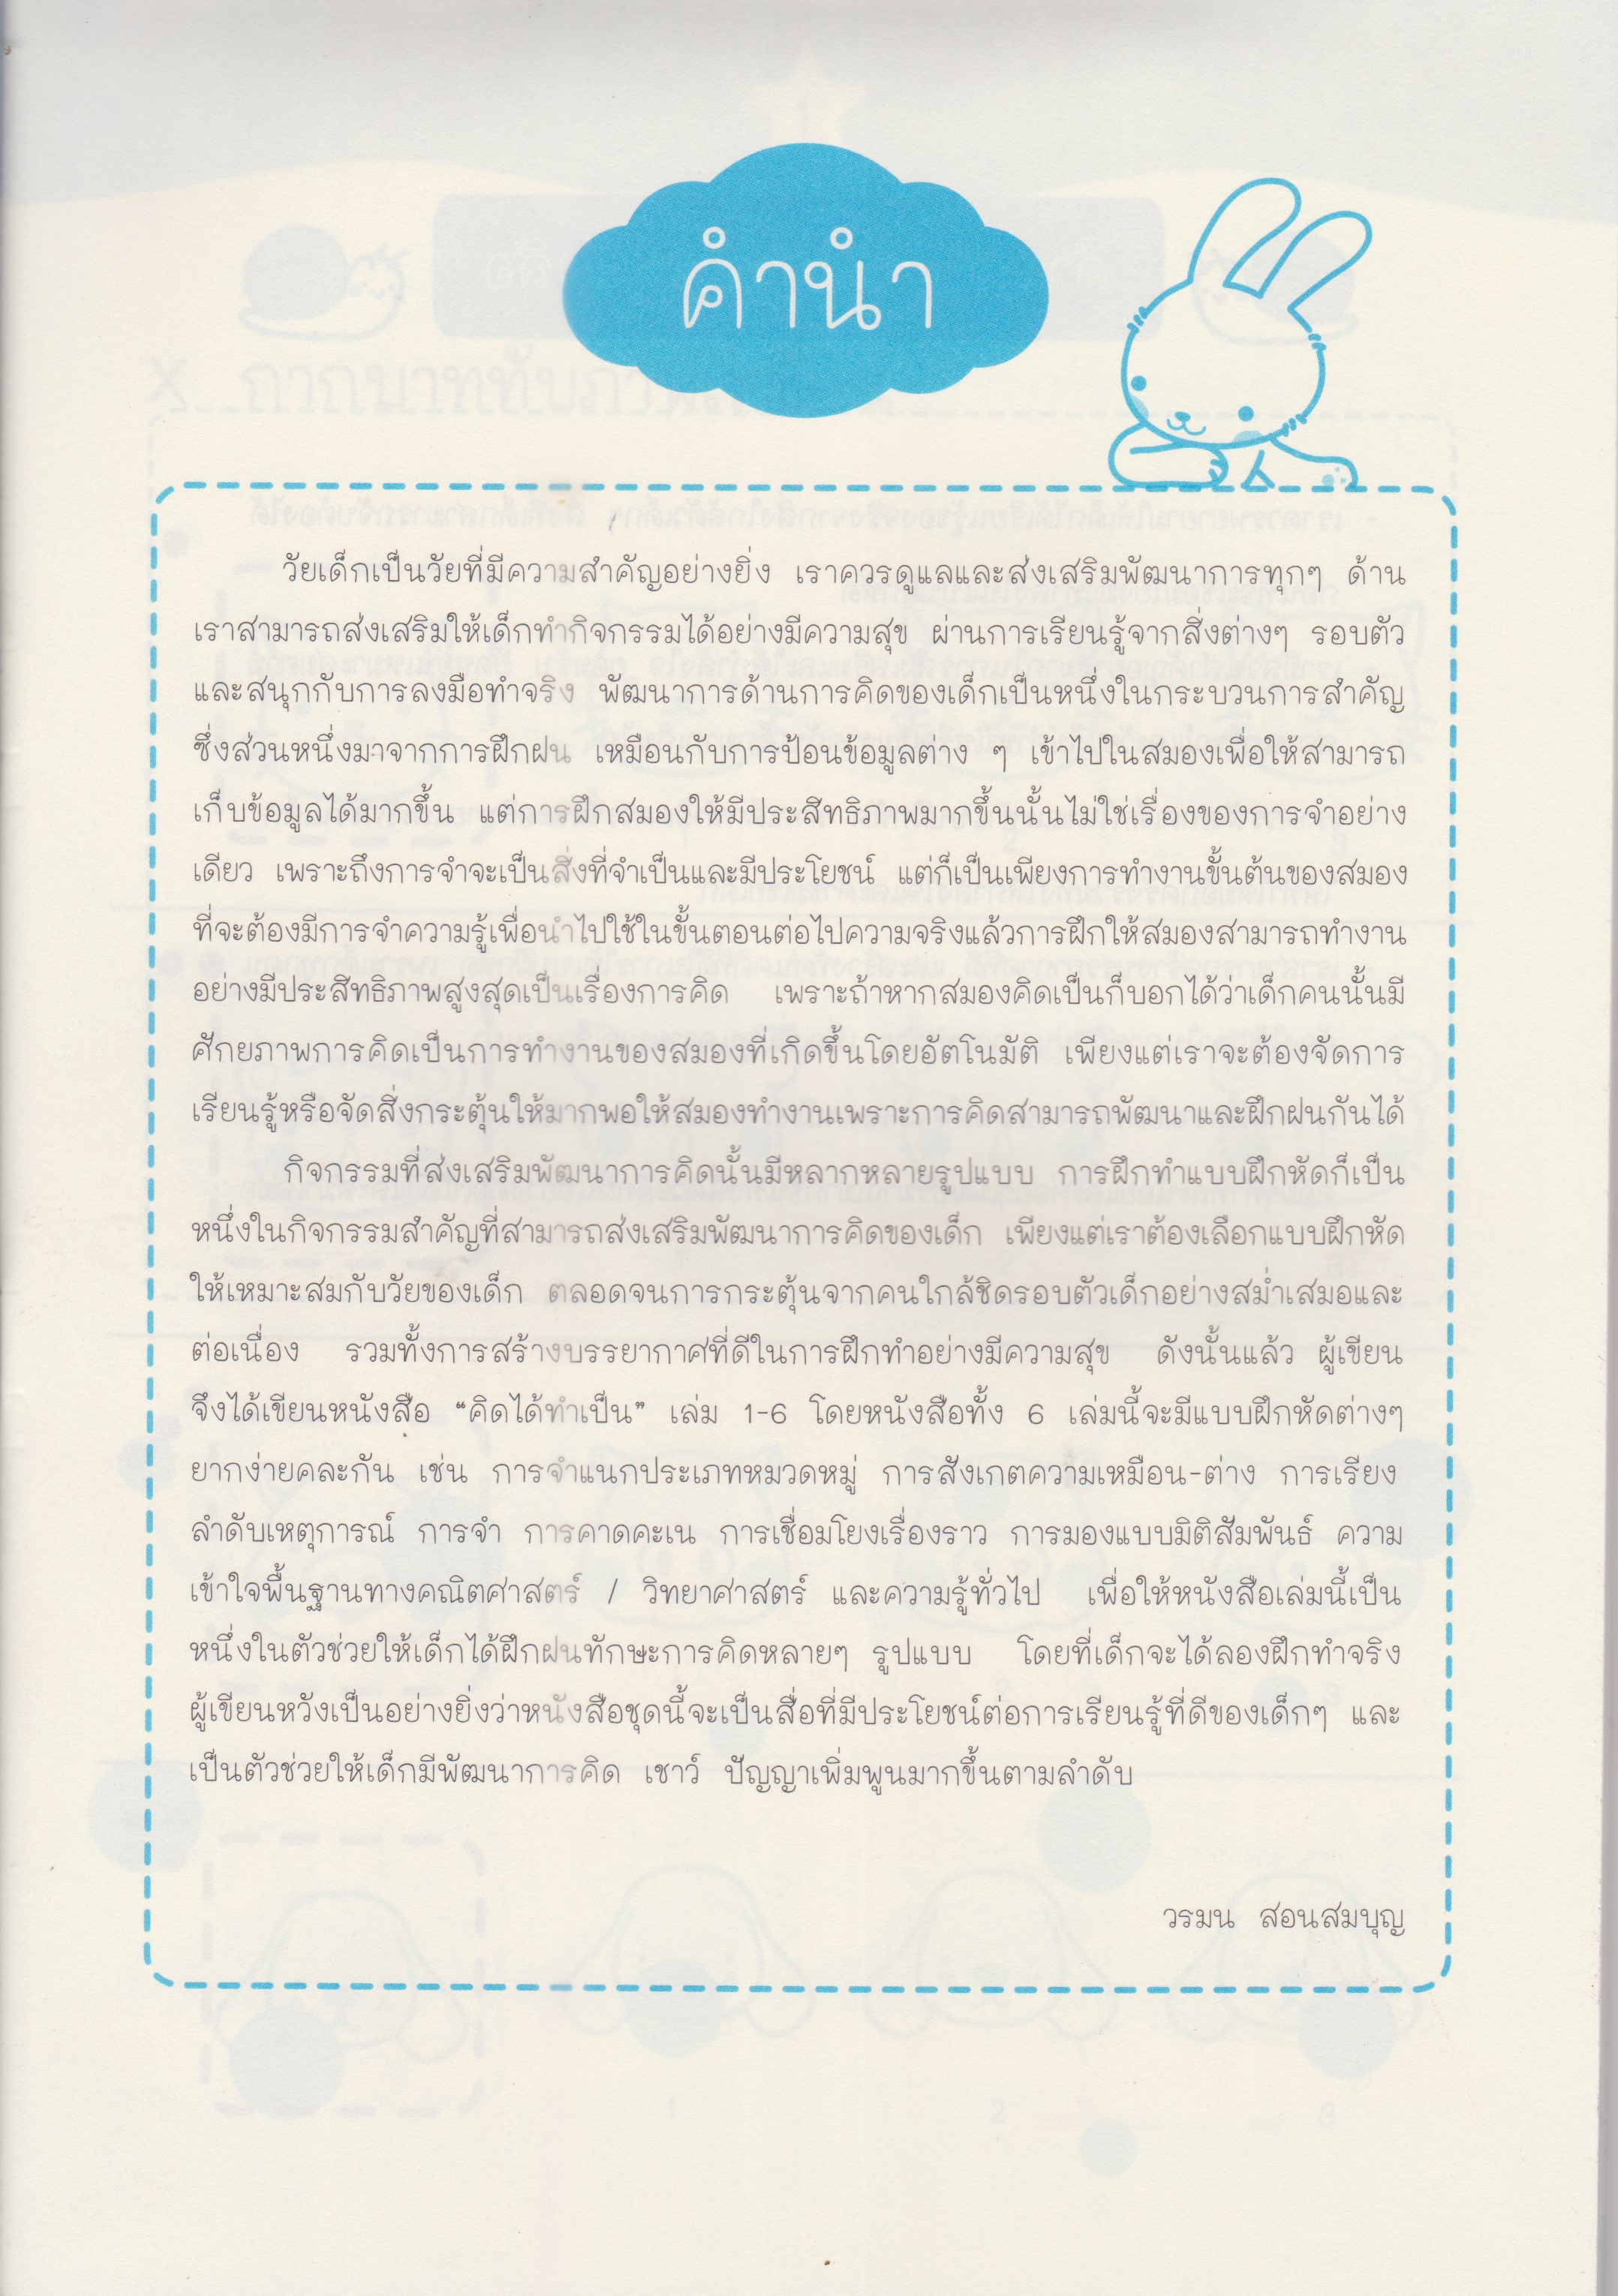 คำนำ
วัยเด็กเป็นวัยที่มีความสำคัญอย่างยิ่ง เราควรดูแลและส่งเสริมพัฒนาการทุกๆ ด้าน
เราสามารถส่งเสริมให้เด็กทำกิจกรรมได้อย่างมีความสุข ผ่านการเรียนรู้จากสิ่งต่างๆ รอบตัว
และสนุกกับการลงมือทำจริง พัฒนาการด้านการคิดของเด็กเป็นหนึ่งในกระบวนการสำคัญ
ซึ่งส่วนหนึ่งมาจากการฝึกฝน เหมือนกับการป้อนข้อมูลต่าง ๆ เข้าไปในสมองเพื่อให้สามารถ
เก็บข้อมูลได้มากขึ้น แต่การฝึกสมองให้มีประสิทธิภาพมากขึ้นนั้นไม่ใช่เรื่องของการจำอย่าง
เดียว เพราะถึงการจำจะเป็นสิ่งที่จำเป็นและมีประโยชน์ แต่ก็เป็นเพียงการทำงานขั้นต้นของสมอง
ที่จะต้องมีการจำความรู้เพื่อนำไปใช้ในขั้นตอนต่อไปความจริงแล้วการฝึกให้สมองสามารถทำงาน
อย่างมีประสิทธิภาพสูงสุดเป็นเรื่องการคิด เพราะถ้าหากสมองคิดเป็นก็บอกได้ว่าเด็กคนนั้นมี
ศักยภาพการคิดเป็นการทำงานของสมองที่เกิดขึ้นโดยอัตโนมัติ เพียงแต่เราจะต้องจัดการ
เรียนรู้หรือจัดสิ่งกระตุ้นให้มากพอให้สมองทำงานเพราะการคิดสามารถพัฒนาและฝึกฝนกันได้
กิจกรรมที่ส่งเสริมพัฒนาการคิดนั้นมีหลากหลายรูปแบบ การฝึกทำแบบฝึกหัดก็เป็น
หนึ่งในกิจกรรมสำคัญที่สามารถส่งเสริมพัฒนาการคิดของเด็ก เพียงแต่เราต้องเลือกแบบฝึกหัด
ให้เหมาะสมกับวัยของเด็ก ตลอดจนการกระตุ้นจากคนใกล้ชิดรอบตัวเด็กอย่างสม่ำเสมอและ
ต่อเนื่อง รวมทั้งการสร้างบรรยากาศที่ดีในการฝึกทำอย่างมีความสุข ดังนั้นแล้ว ผู้เขียน
จึงได้เขียนหนังสือ “คิดได้ทำเป็น” เล่ม 1-6 โดยหนังสือทั้ง 6 เล่มนี้จะมีแบบฝึกหัดต่างๆ
ยากง่ายคละกัน เช่น การจำแนกประเภทหมวดหมู่ การสังเกตความเหมือน-ต่าง การเรียง
ลำดับเหตุการณ์ การจำ การคาดคะเน การเชื่อมโยงเรื่องราว การมองแบบมิติสัมพันธ์ ความ
เข้าใจพื้นฐานทางคณิตศาสตร์ / วิทยาศาสตร์ และความรู้ทั่วไป เพื่อให้หนังสือเล่มนี้เป็น
หนึ่งในตัวช่วยให้เด็กได้ฝึกฝนทักษะการคิดหลายๆ รูปแบบ โดยที่เด็กจะได้ลองฝึกทำจริง
ผู้เขียนหวังเป็นอย่างยิ่งว่าหนังสือชุดนี้จะเป็นสื่อที่มีประโยชน์ต่อการเรียนรู้ที่ดีของเด็กๆ และ
เป็นตัวช่วยให้เด็กมีพัฒนาการคิด เชาว์ ปัญญาเพิ่มพูนมากขึ้นตามลำดับ
วรมน สอนสมบุญ